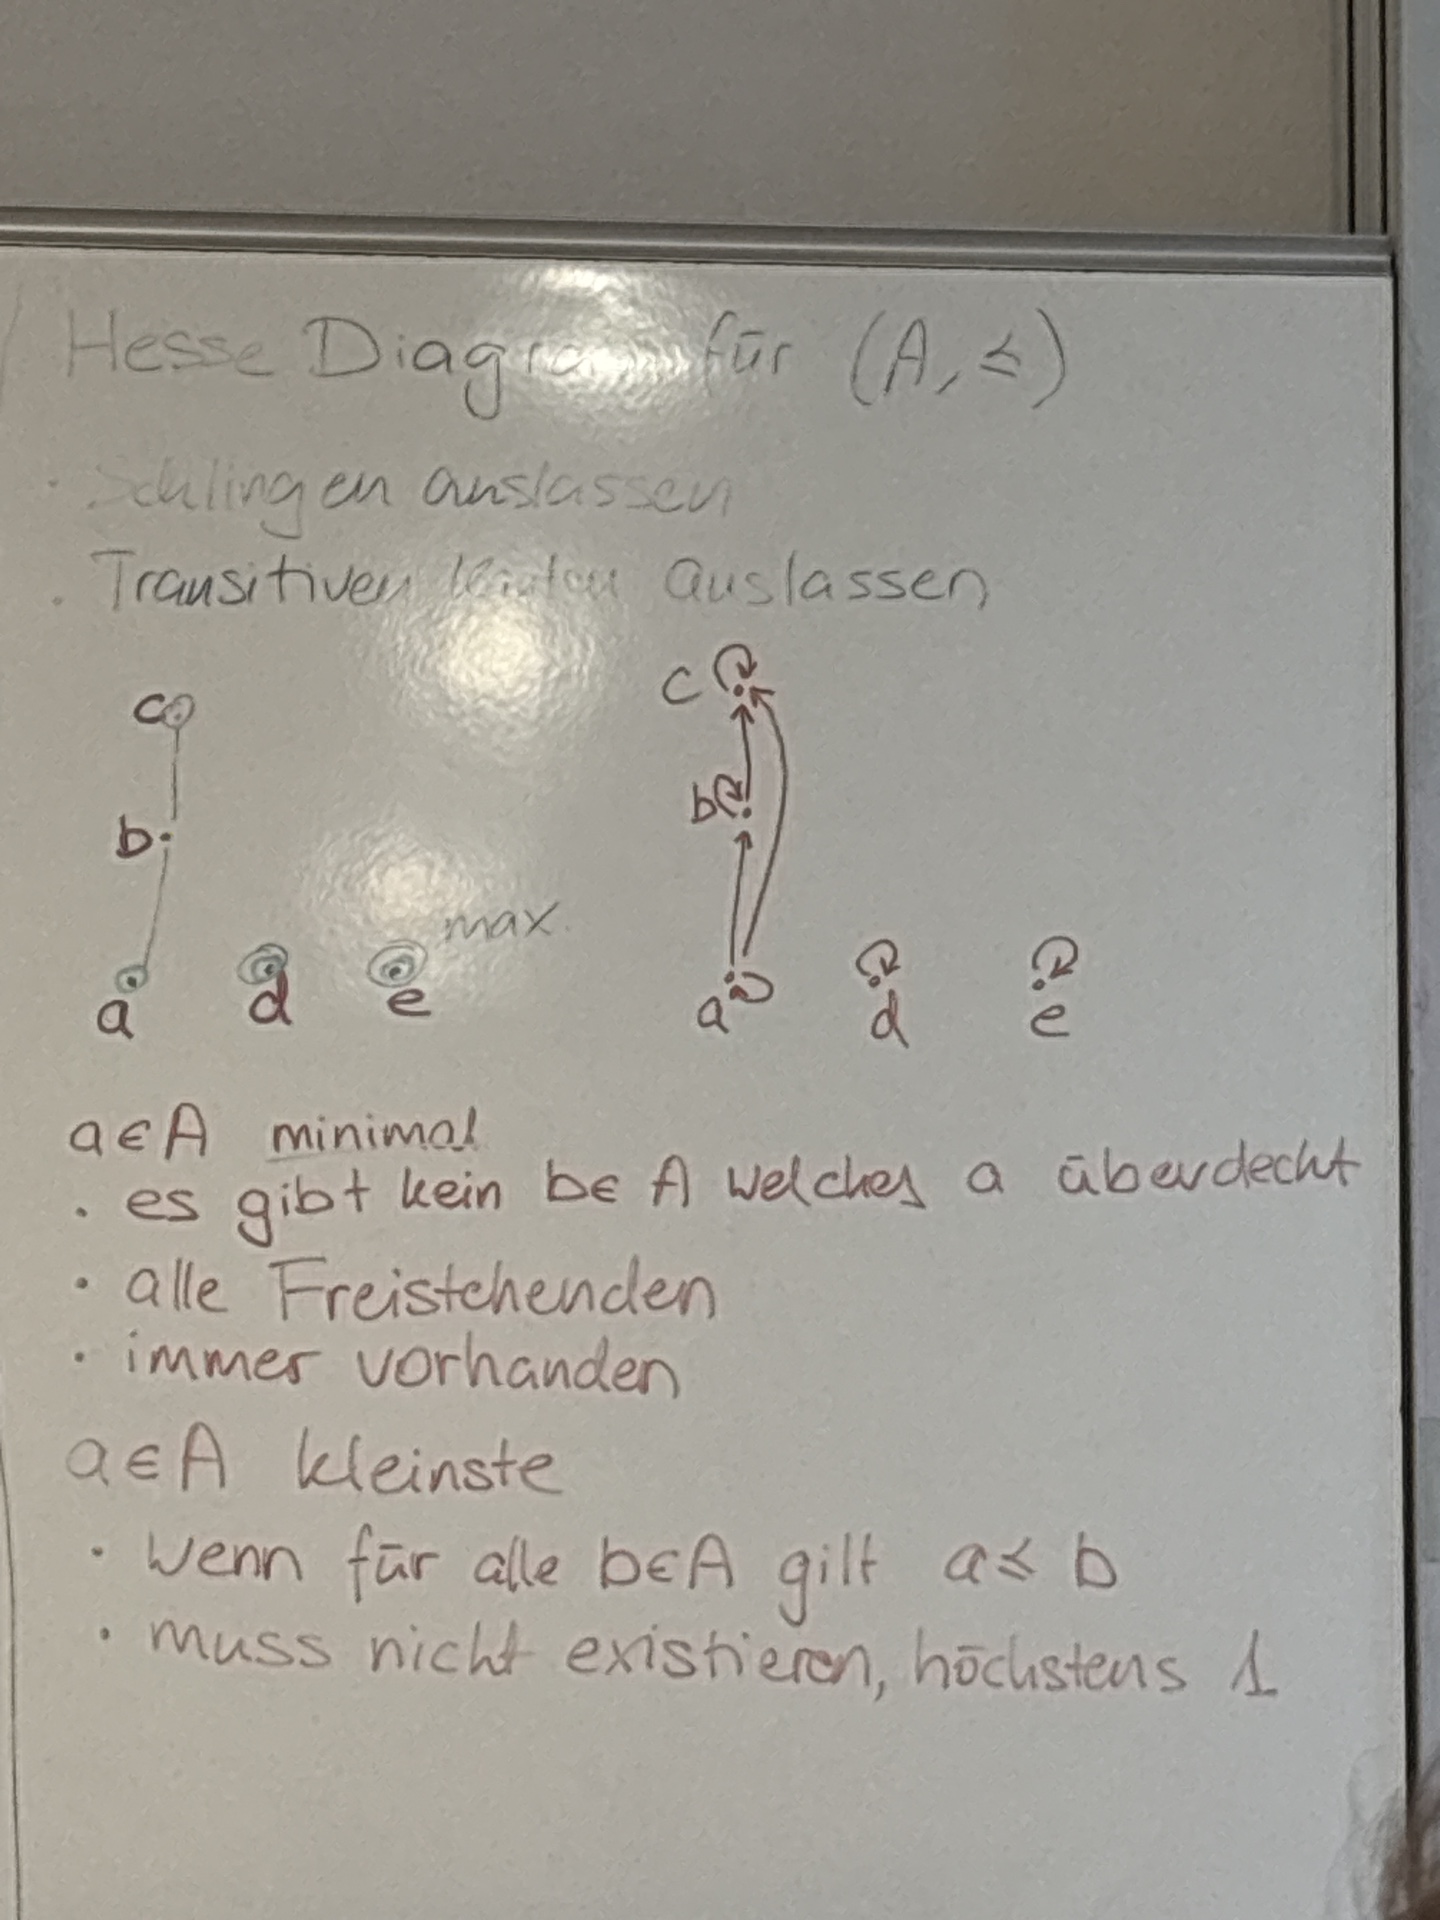 Hesse Diagram für (A, ≤)
· Schlingen auslassen
· Transitiven Kanten auslassen
c
b
a d e max.
c
b
a d e
a∈A minimal
· es gibt kein b∈A welches a überdeckt
· alle Freistehenden
· immer vorhanden
a∈A kleinste
· wenn für alle b∈A gilt a≤b
· muss nicht existieren, höchstens 1